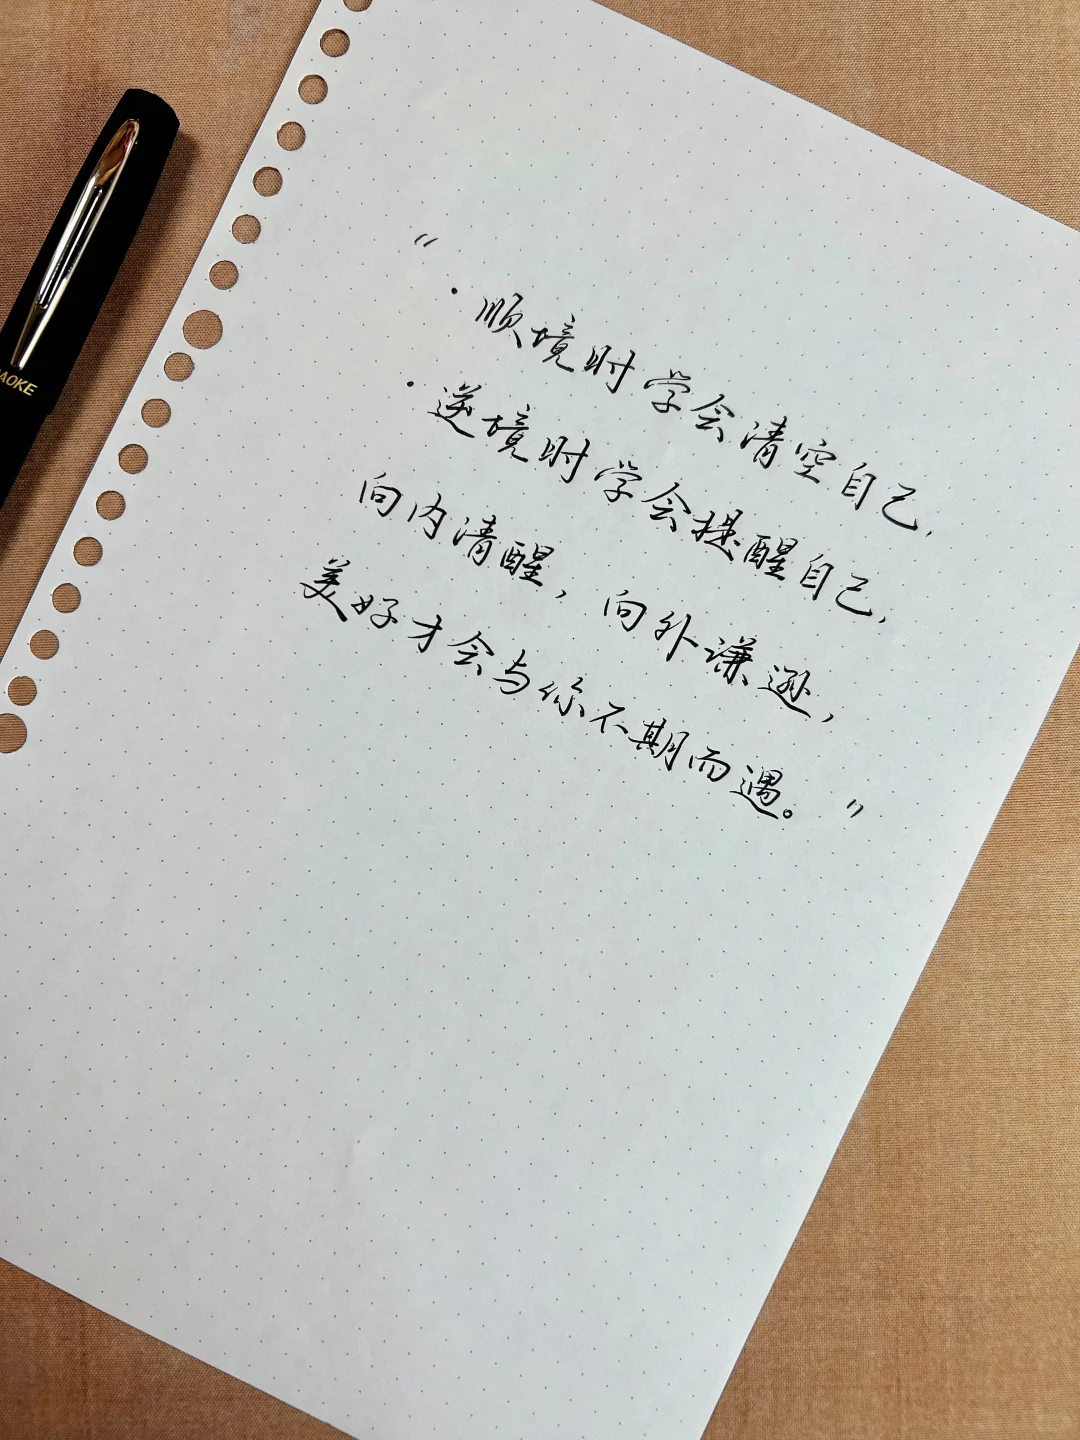 "
· 顺境时学会清空自己,
· 逆境时学会提醒自己,
向内清醒,向外谦逊,
美好才会与你不期而遇。"
AOKE